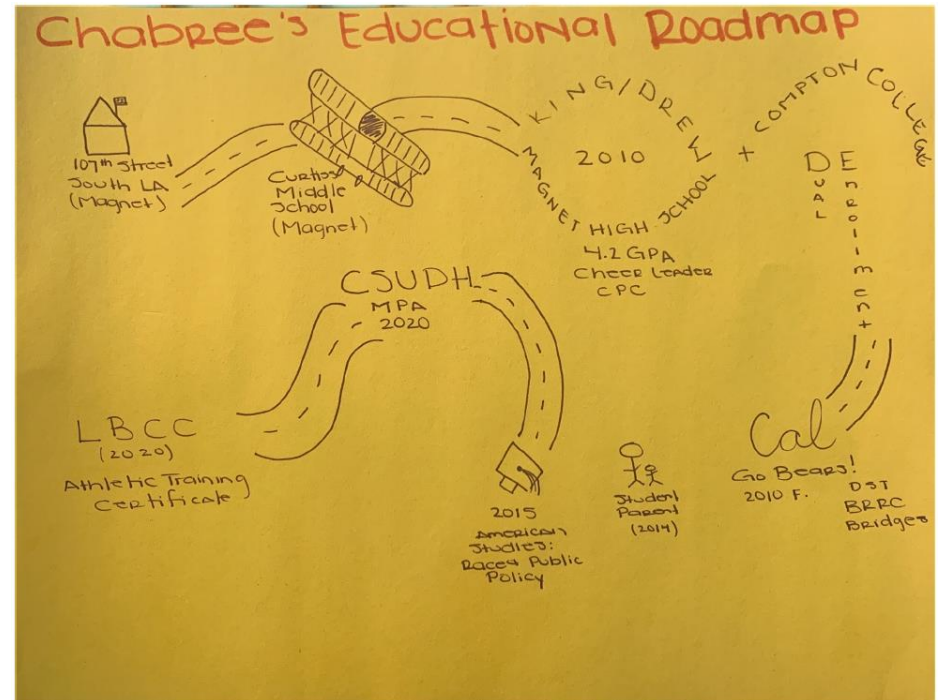 Chabree's Educational Roadmap
107th Street
South LA
(Magnet)
Curtiss
Middle
School
(Magnet)
KING/DREW
MAGNET HIGH SCHOOL
2010
4.2 GPA
Cheer Leader
CPC
+ COMPTON COLLEGE
DUAL
Enrollment
Cal
Go Bears!
2010 F.
DST
BRRC
Bridges
Student
Parent
(2014)
2015
American
Studies:
Race & Public
Policy
CSUDH
MPA
2020
LBCC
(2020)
Athletic Training
Certificate